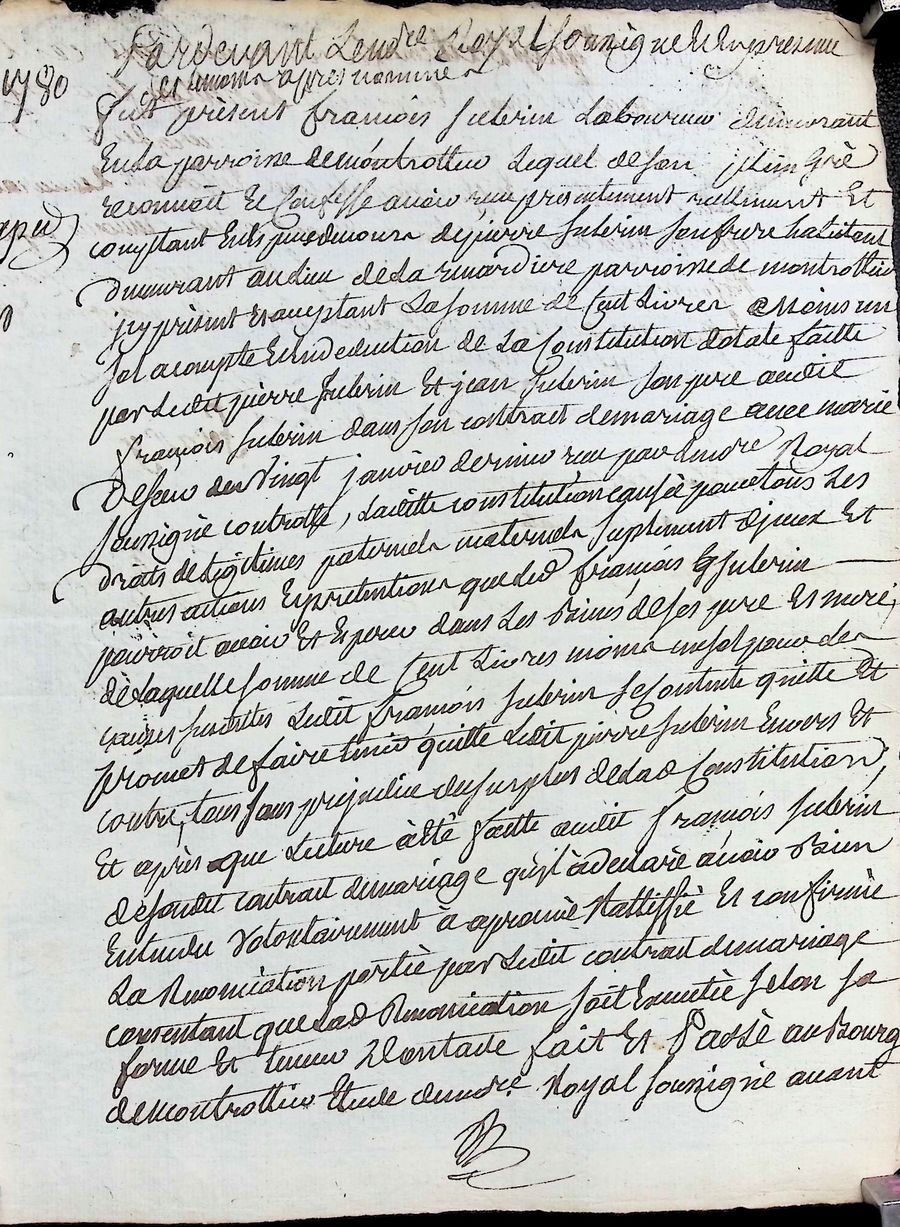 1780
Pardevant Le no.re Royal Soussigné et En presence
des temoins apres nommés
fut présent françois Suberin Laboureur demeurant
En La parroisse de móntrottier Lequel de son plein Gré
reconnoit Et Confesse avoir reçu présentement réellement Et
comptant En Espece de cours de pierre Suberin son frere habitant
Demeurant au Lieu de La remardiere parroisse de montrottier
jcy présent Et acceptant La somme de Cent Livres Moins un
sol acompte Et en deduction de La Constitution dotale faitte
par Ledit pierre Suberin Et jean Suberin son pere audit
françois Suberin dans son contract de mariage avec marie
du Vingt janvier dernier reçu par le no.re Royal
Soussigné controllé, Laditte constitution causée pour tous Les
Droits de Légitimes paternels maternels suplement d'jceux Et
autres actions Et prétentions que led françois Suberin
pourroit avoir Et Esperer dans Les Biens de ses pere Et mere,
de Laquelle somme de Cent Livres moins un sol pour les
causes susdittes Ledit françois Suberin se Contente quitte Et
promet de faire tenir quitte Ledit pierre Suberin Envers Et
contre tous sans prejudice du surplus de lad Constitution,
Et après que Lecture à Eté faitte audit françois Suberin
de sondit contract de mariage qu'jl à declaré avoir Bien
Entendu Volontairement à aprouvé Rattiffié Et confirmé
La Renonciation portée par Ledit contract de mariage
consentant que Lad Renonciation soit Executée selon sa
forme Et teneur Dont acte fait Et Passé au Bourg
de montrottier Etude du no.re Royal soussigné avant